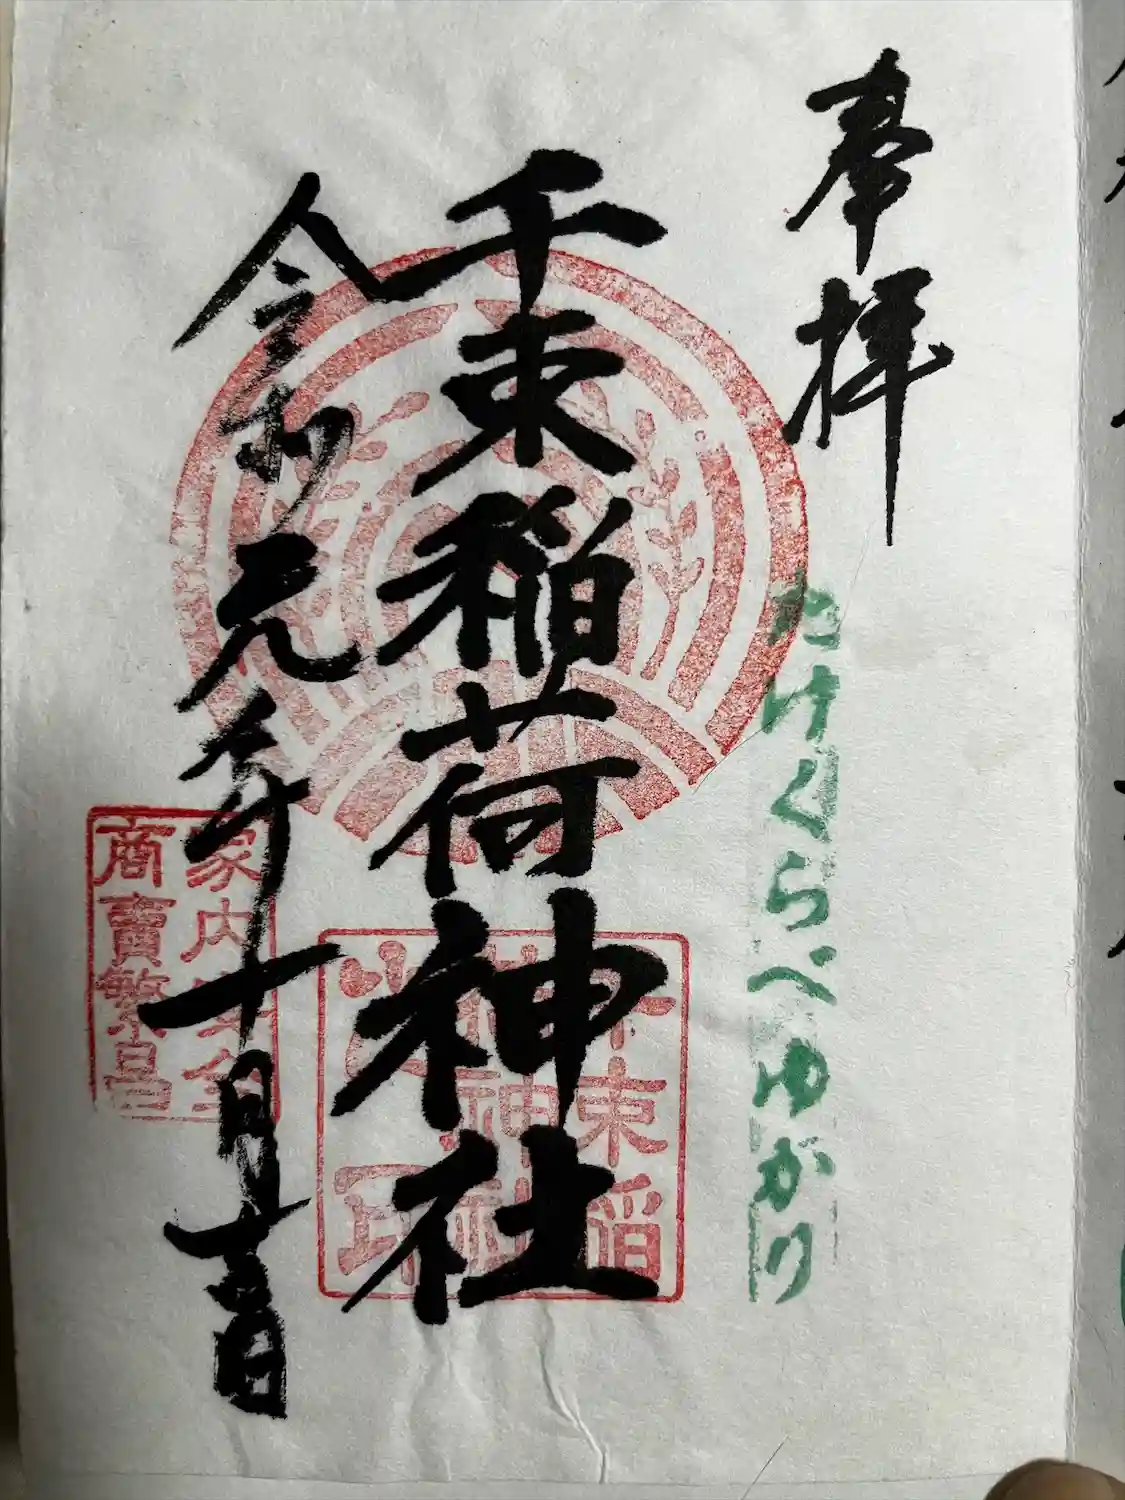 奉拝
たけくらべゆかり
千束稲荷神社
千束稲
荷神社
家内安全
商賣繁昌
令和元年十月十
日